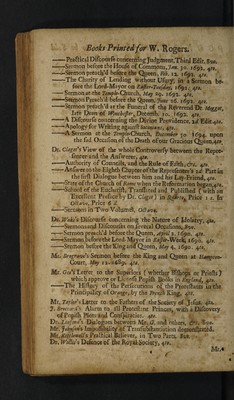 Books Printed for W. Rogers.
—Practical Discourse concerning Judgment, Third Edit. 8vo.
—Sermon before the House of Commons, Jan. 30. 1692. 4to.
—Sermon preach'd before the Queen, Feb. 12. 1692. 4to.
—The Charity of Lending without Usury, in a Sermon before
fore the Lord-Mayor on Easter-Tuesday, 1692. 4to.
—Sermon at the Temple-Church, May 29. 1692. 4to.
—Sermon Preach'd before the Queen, June 26. 1692. 4to.
—Sermon preach'd at the Funeral of the Reverend Dr.
late Dean of Winchester, Decemb. 10. 1692. 4to.
—A Discourse concerning the Divine Providence, 2d Edit. 4to.
—Apology for Writing against Socinians, 4to.
—A Sermon at the Temple-Church, December 30 1694. upon
the sad Occasion of the Death of our Gracious Queen, 4to.
Dr. Claget's View of the whole Controversy between the Representer
senter and the Answerer, 4to.
—Authority of Councils, and the Rule of Faith, &c. 4to.
—Answer to the Eighth Chapter of the Representer's 2d Part in
the first Dialogue between him and his Lay-Friend, 4to.
—State of the Church of Rome when the Reformation began, 4to.
—School of the Eucharist, Translated and Published (with an
Excellent Preface) by Dr. Claget) in
Octavo, Price
—Sermons in Two Volumes, Octavo.
Dr. Wake's Discourse concerning the Nature of Idolatry, 4to.
—Sermons and Discourses on several Occasions, 8vo.
—Sermon preach'd before the Queen, April 2. 1690. 4to.
—Sermon before the Lord-Mayor in Easter-Week, 1690. 4to.
—Sermon before the King and Queen, May 4. 1690. 4to.
Mr. Bragrave's Sermon before the King and Queen at Hampton-
Court, May 12. 1689. 4to.
Mr. Gee's Letter to the Superiors (whether Bishops or Priests)
which approve or License Popish Books in England, 4to.
—The History of the Persecutions of the Protestants in the
Principality of Orange, by the French King, 4to.
Mr. Taylor's Letter to the Fathers of the Society of Jesus. 4to.
T. Alarm to all Protestant Princes, with a Discovery
of Popish Plots and Conspiracies. 4to.
Dr. Dialogues between Mr. G. and others, &c. 8vo.
Mr. Johnson's Impossibility of Transubstantiation demonstrated.
Mr. Practical Believer, in Two Parts, 8vo.
Dr. Wallis's Defence of the Royal Society, 4to.
Mr.